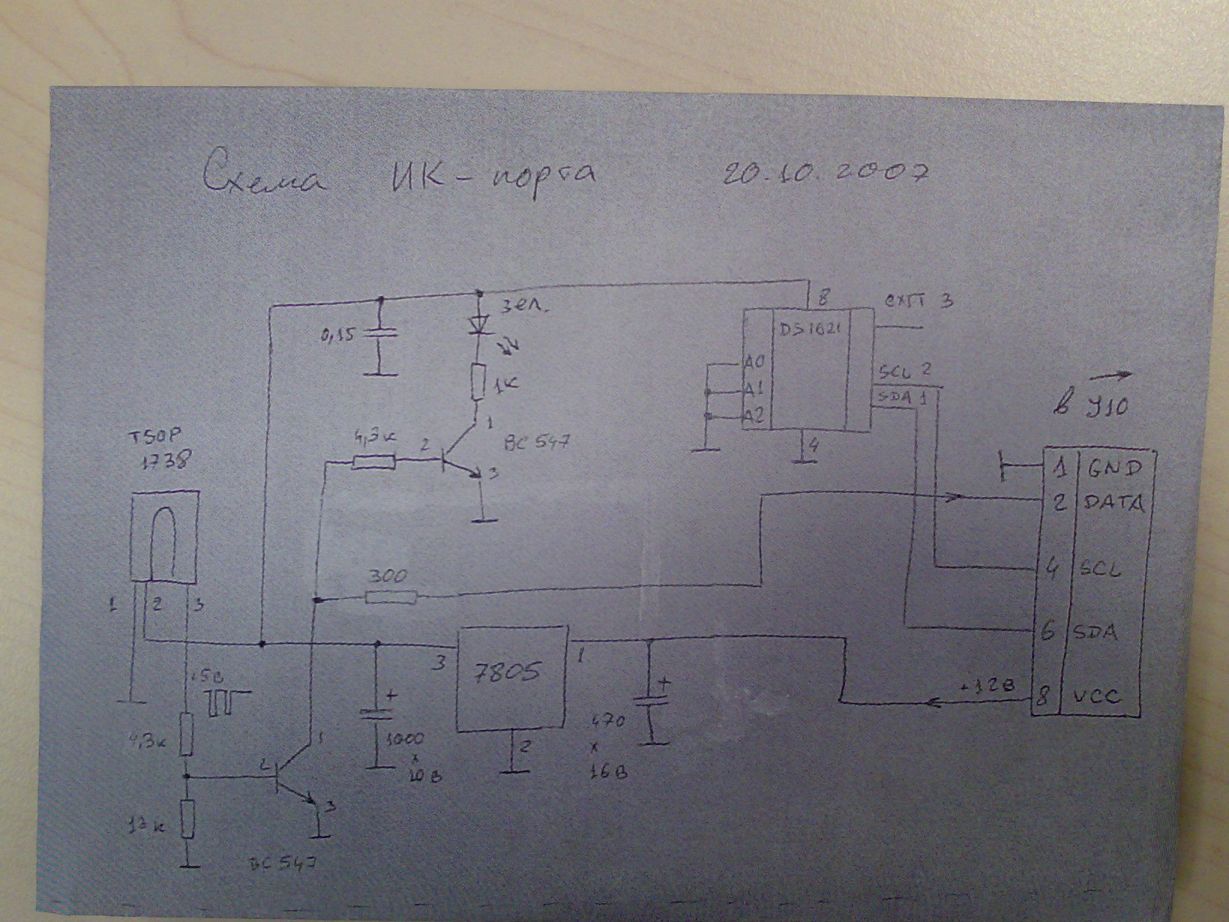 Схема ИК-порта 20.10.2007
зел.
0,15
1К
8
DS1621
3
A0
A1
A2
SCL 2
SDA 1
4
4,3к
2
1
3
BC547
TSOP
1738
1 2 3
300
+5В
4,3к
13к
2
1
3
BC547
+
1000
x
10В
3
7805
1
2
+
470
x
16В
+12В
1 GND
2 DATA
4 SCL
6 SDA
8 VCC